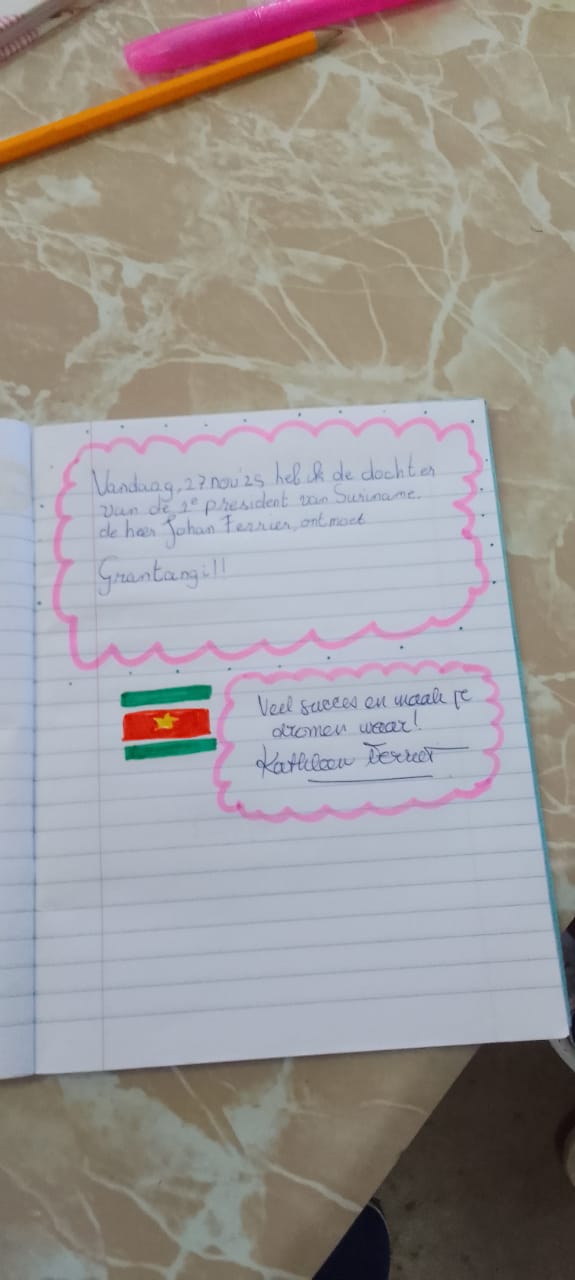 Vandaag, 27 nov '25 heb ik de dochter
van de 1e president van Suriname.
de heer Johan Ferrier, ontmoet
Grantangi!!
Veel succes en maak je
dromen waar!
Kathleen Ferrier